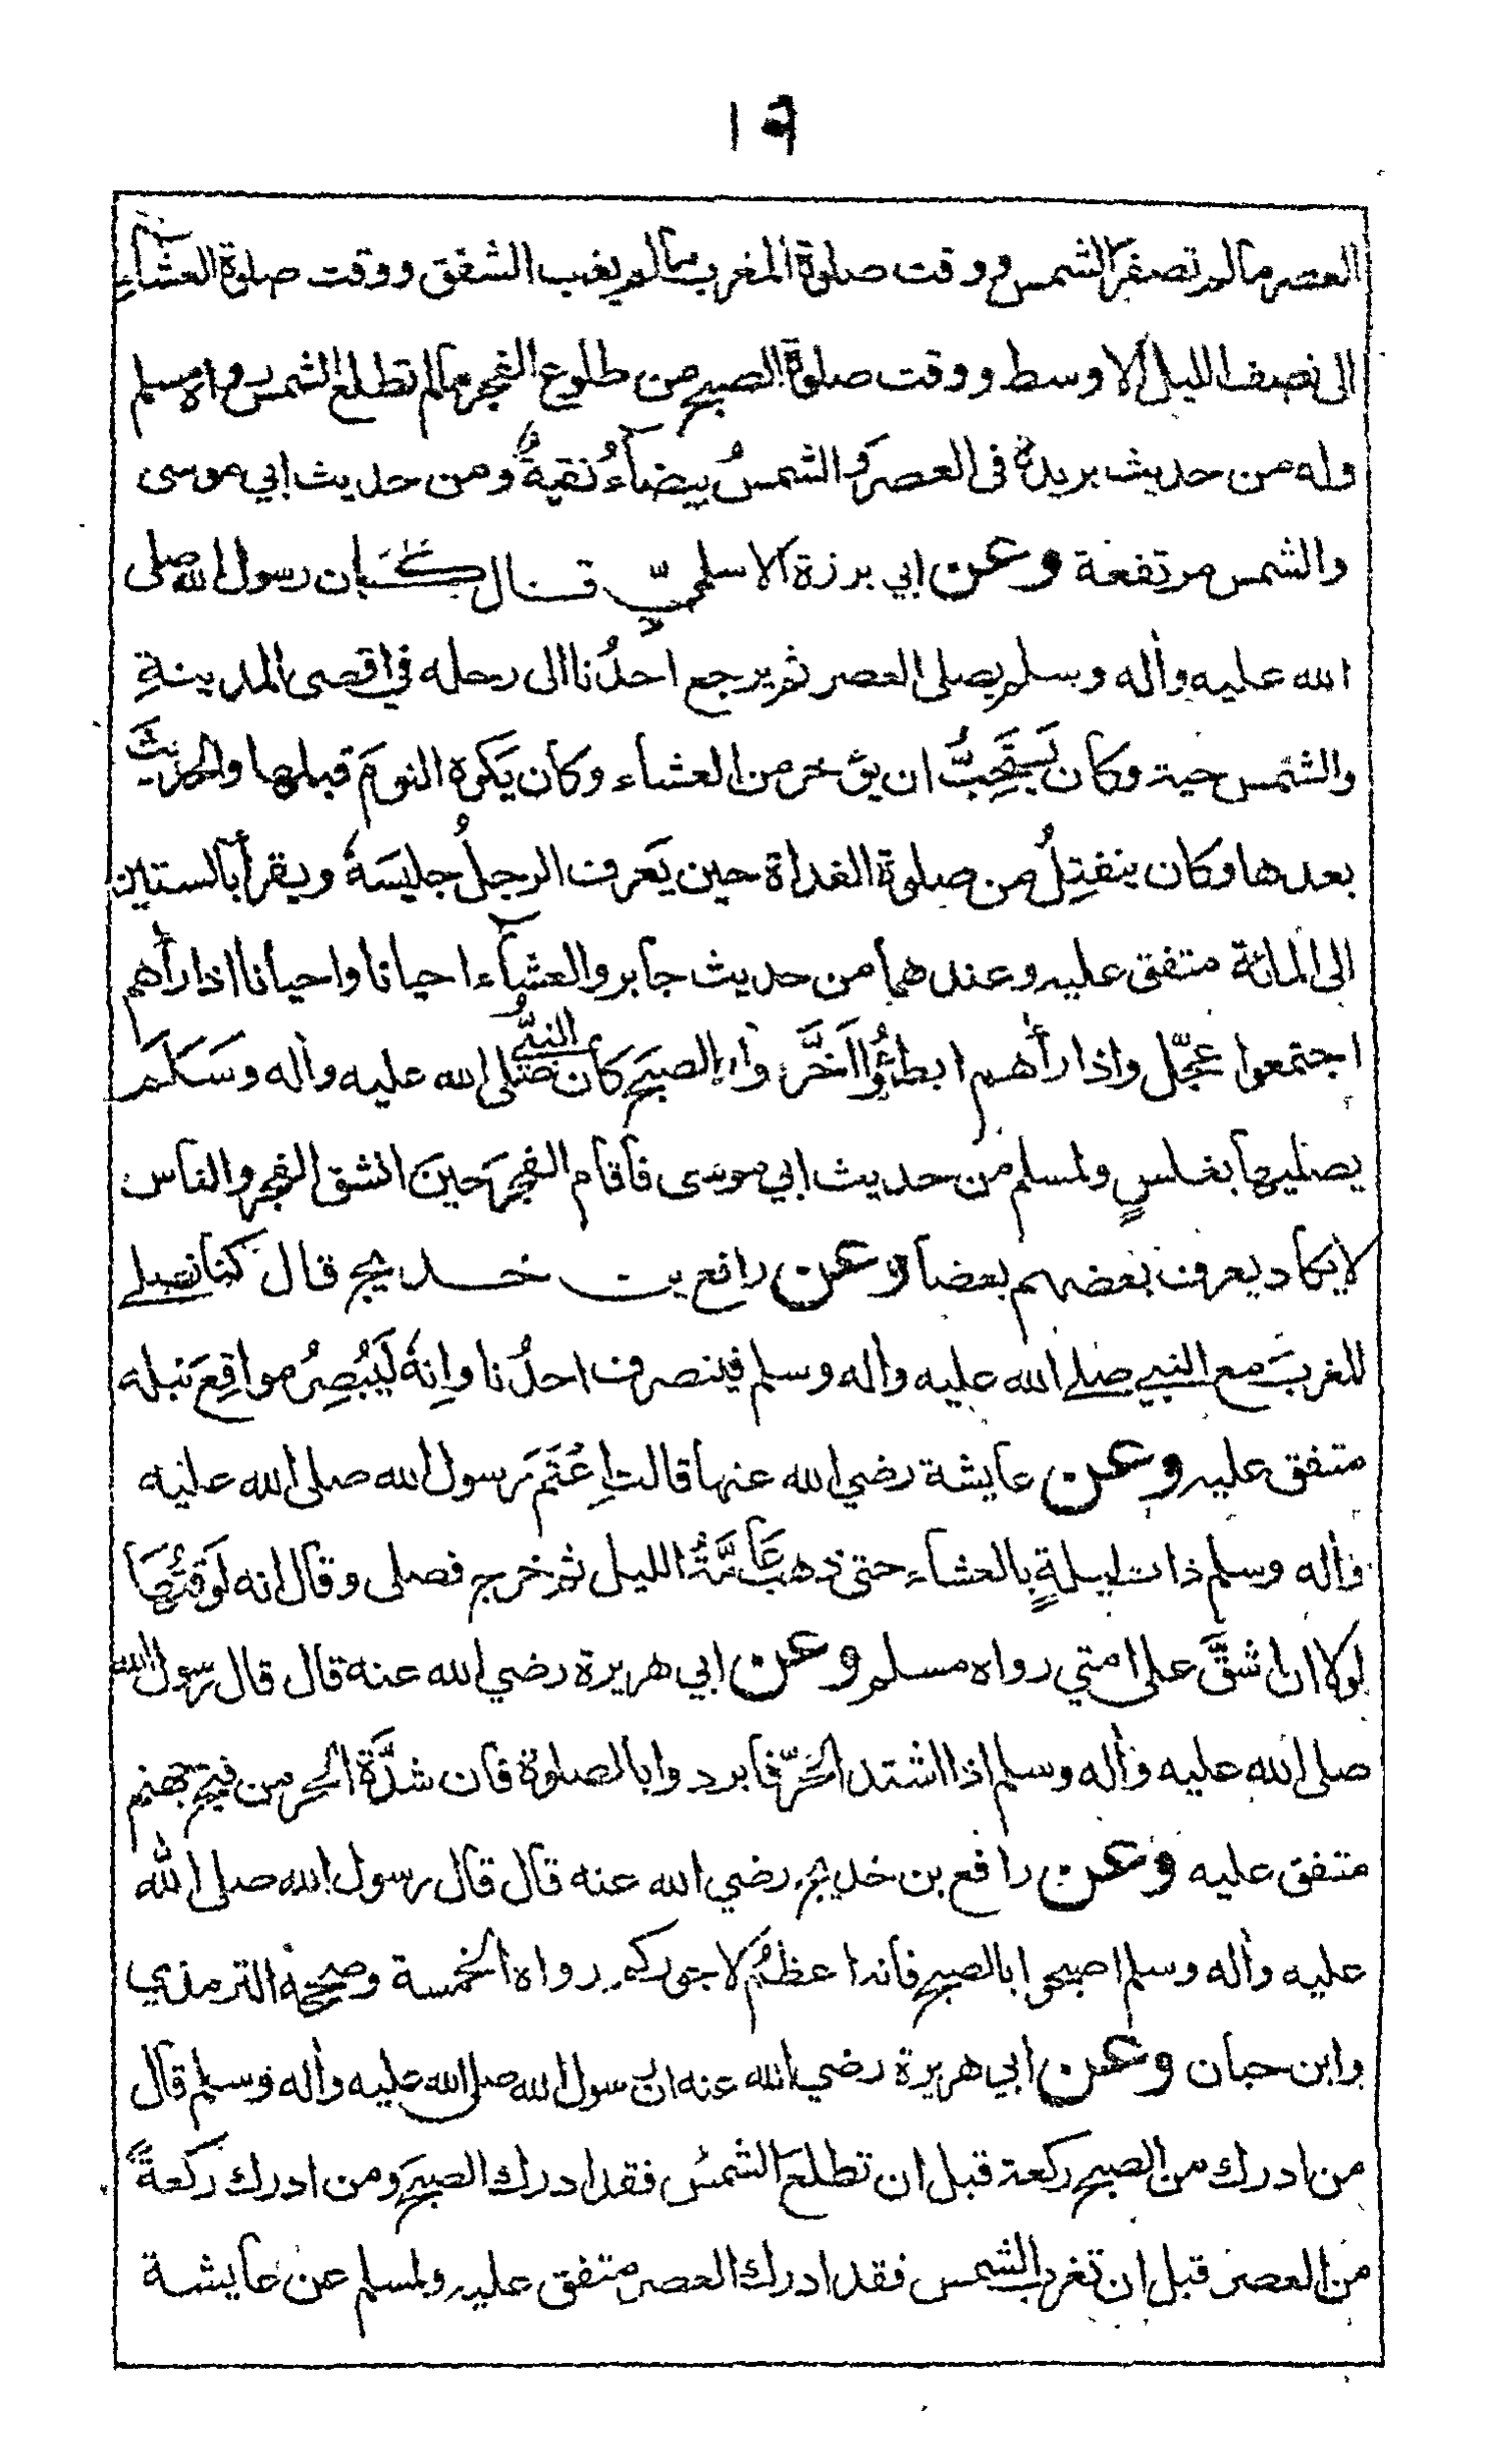 ١٩
العصر مالم تصفر الشمس ووقت صلوة المغرب مالم يغب الشفق ووقت صلوة العشاء
الى نصف الليل الاوسط ووقت صلوة الصبح من طلوع الفجر مالم تطلع الشمس رواه مسلم
وله من حديث بريدة فى العصر والشمسُ بيضآءُ نقيةٌ ومن حديث ابي موسى
والشمس مرتفعة وعن ابي برزة الاسلميّ قال كان رسول الله صلى
الله عليه وأله وسلم يصلى العصر ثم يرجع احدُنا الى رحله في اقصى المدينةِ
والشمس حية وكان يَستَحِبُّ ان يؤخر من العشاء وكان يَكره النومَ قبلها والحديثَ
بعدها وكان ينفتِلُ من صلوة الغداة حين يَعرف الرجلُ جليسَهٗ ويقرأ بالستين
الى المائة متفق عليه وعندهما من حديث جابر والعشآء احيانا واحيانا اذا رأهم
اجتمعوا عجّل واذا رأهم ابطئُوا اَخَّرَ والصبحَ كان النبيُّ صلى الله عليه وأله وسَلَّمَ
يصليها بغلسٍ ولمسلم من حديث ابي موسى فاقام الفجرَ حينَ انشق الفجر والناس
لايكاد يعرف بعضهم بعضا وعن رافع بن خديج قال كنا نصلي
المغربَ مع النبي صلى الله عليه وأله وسلم فينصرف احدُنا وانهٗ لَيُبْصِرُ مواقِعَ نبله
متفق عليه وعن عايشة رضي الله عنها قالت اِعْتَمَ رسول الله صلى الله عليه
وأله وسلم ذات ليلةٍ بالعشاء حتى ذهب عَامَّةُ الليل ثم خرج فصلى وقال انه لَوَقْتُهَا
لولا ان اشقَّ على امتي رواه مسلم وعن ابي هريرة رضي الله عنه قال قال رسول الله
صلى الله عليه وأله وسلم اذا اشتد الحَرّ فابردوا بالصلوة فان شدَّة الحر من فيح جهنم
متفق عليه وعن رافع بن خديج رضي الله عنه قال قال رسول الله صلى الله
عليه وأله وسلم اصبحوا بالصبح فانه اعظمُ لاجوركم رواه الخمسة وصححه الترمذي
وابن حبان وعن ابي هريرة رضي الله عنه ان رسول الله صلى الله عليه وأله وسلم قال
من ادرك من الصبح ركعة قبل ان تطلعَ الشمسُ فقد ادرك الصبح ومن ادرك ركعةً
من العصر قبل ان تغرب الشمس فقد ادرك العصر متفق عليه ولمسلم عن عايشة